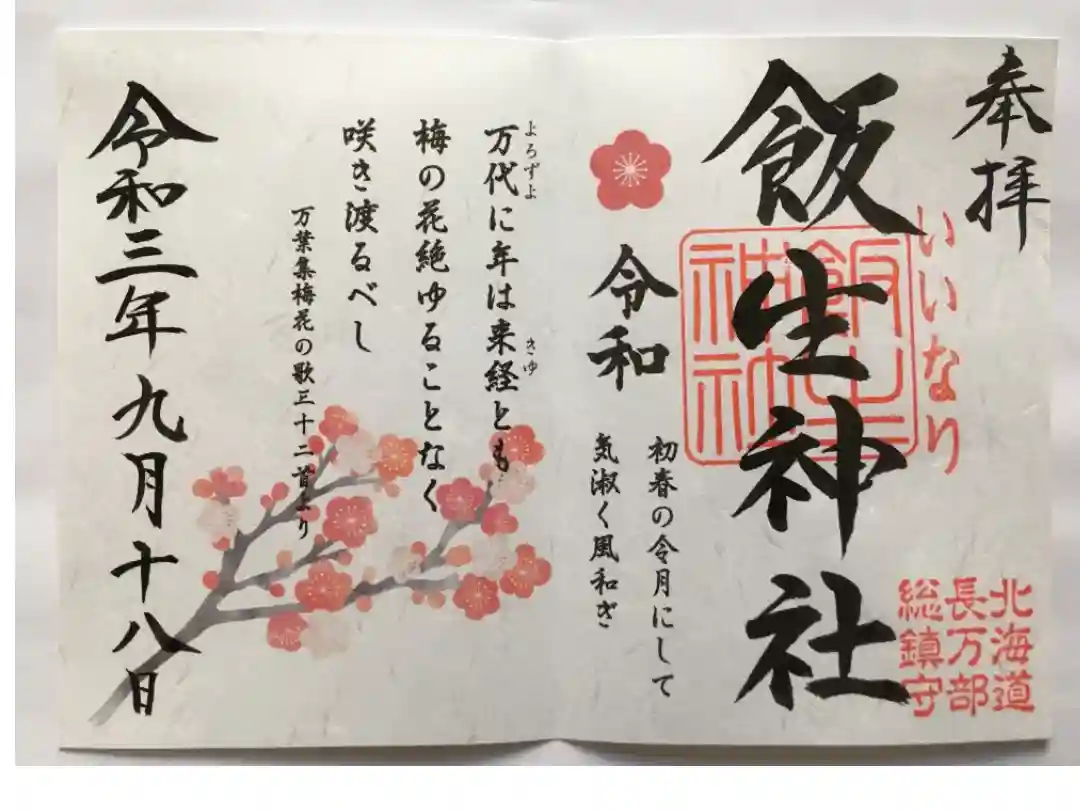 奉拝
いいなり
飯生神社
飯生神社
北海道
長万部
総鎮守
令和
初春の令月にして
気淑く風和ぎ
よろずよ
きゆ
万代に年は来経とも
梅の花絶ゆることなく
咲き渡るべし
万葉集梅花の歌三十二首より
令和三年九月十八日